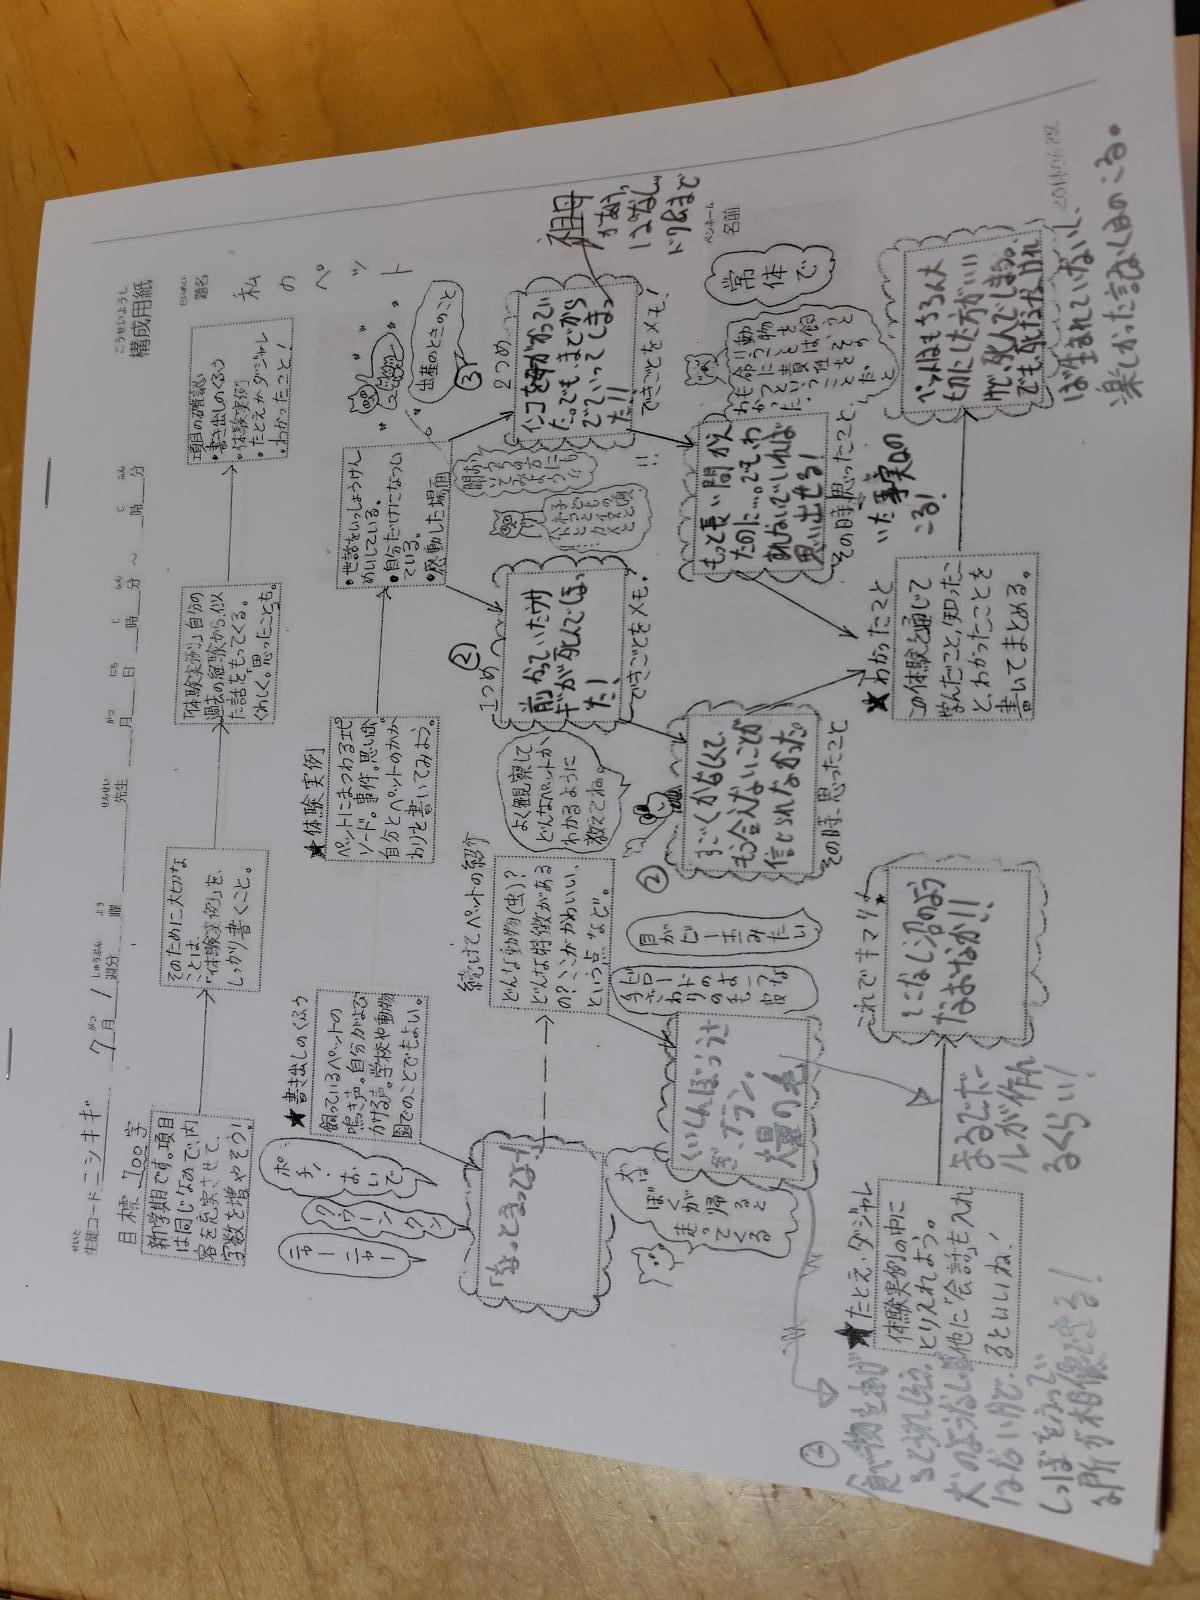 こうせいようし
構成用紙
せいと
生徒コード ニシキギ
7月 1週分
しゅうぶん
よう
曜
せんせい
先生
がつ
月
にち
日
じ
時
ふん
分
～
じ
時
ふん
分
だいめい
題名
私のペット
目標 700字
新学期です。項目
は同じなので、内
容を充実させて、
字数を増やそう！
そのために大切な
ことは、
「体験実例」を、
しっかり書くこと。
「体験実例」自分の
過去の経験から、似
た話をもってくる。
くわしく。思ったことも。
項目の確認
・書き出しのくふう
・体験実例
・たとえかダジャレ
・わかったこと！
★書き出しのくふう
飼っているペットの
鳴き声。自分がよび
かける声。学校や動物
園でのことでもよい。
ポチ！
おいで
クウーン
クン
ニャー
ニャー
「ちょっとまってよ！」
続けてペットの紹介
どんな動物(虫)？
どんな特徴がある
の？ここがかわいい、
という点など。
よく観察して
どんなペットか、
わかるように
教えてね。
目が
ビー玉みたい
くいしんぼううさ
ぎ、ブラン。
大量の毛
犬は
ぼくが
帰ると
走って
くる
★体験実例
ペットにまつわるエピ
ソード。事件。思い出。
自分とペットのかか
わりを書いてみよう。
・世話をいっしょうけん
めいしている。
・自分だけになつい
ている。
・感動した場面
出産のときのこと
③
②
1つめ
前かっていたウサ
ギが死んでしまっ
た！
できごとをメモ。
②
すごくかなしくて、
もう会えないことが
信じられなかった。
その時、思ったこと
2つめ
インコを前かってい
た。でも、まどから
でていってしまっ
た!!
できごとをメモ！
祖母
かあう、
はなし。
もっと長い間かえ
たのに…。でも、わ
すれないでいれば
思い出せる！
その時、思ったこと、
ペンネーム
名前
常体で
動物
も命
★わかったこと
この体験を通じて
学んだこと、知ったこ
と、わかったことを
書いてまとめる。
ペットはもちろん大
切にした方がいい
けど、死んでしまう。
でも、死ななければ
ば生まれていないし、
楽しかった記おくはのこる。
いた事実はの
こる！
★たとえ・ダジャレ
体験実例の中に
とりいれよう。
他に「会話」も入れ
るといいね！
まるでボー
ルが作れ
るくらい！
これでキマリ★
そこなし沼のよう
なおなか!!
②
食べ物をあげ
るとうれしそう。
犬のようなしっぽ
はないけど、
しっぽをふって
る所が想像できる！